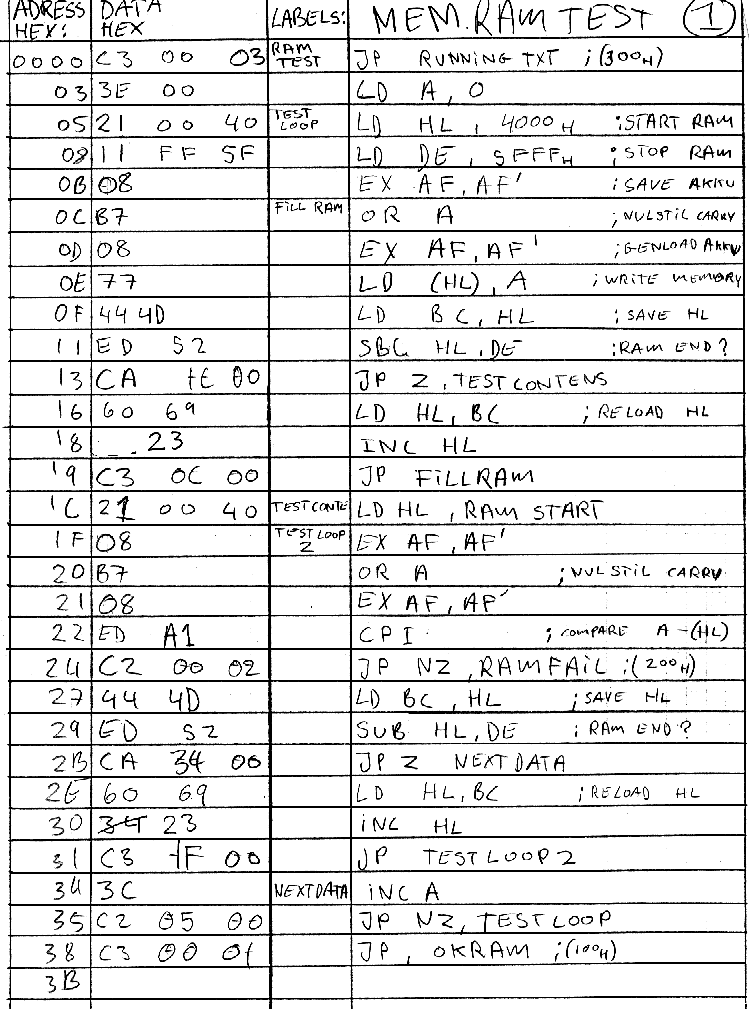 ADRESS HEX: DATA HEX LABELS: MEM.RAM TEST 1
0000 C3 00 03 RAM TEST JP RUNNING TXT ;(300H)
03 3E 00 LD A,0
05 21 00 40 TEST LOOP LD HL, 4000H ;START RAM
08 11 FF 5F LD DE, 5FFFH ;STOP RAM
0B 08 EX AF,AF' ;SAVE AKKU
0C B7 FILL RAM OR A ;NULSTIL CARRY
0D 08 EX AF,AF' ;GENLOAD AKKU
0E 77 LD (HL),A ;WRITE MEMORY
0F 44 4D LD BC,HL ;SAVE HL
11 ED 52 SBC HL,DE ;RAM END?
13 CA 1C 00 JP Z,TESTCONTENS
16 60 69 LD HL,BC ;RELOAD HL
18 23 INC HL
19 C3 0C 00 JP FILLRAM
1C 21 00 40 TESTCONTE LD HL, RAM START
1F 08 TESTLOOP 2 EX AF,AF'
20 B7 OR A ;NULSTIL CARRY
21 08 EX AF,AF'
22 ED A1 CPI ;COMPARE A-(HL)
24 C2 00 02 JP NZ,RAMFAIL ;(200H)
27 44 4D LD BC,HL ;SAVE HL
29 ED 52 SUB HL,DE ;RAM END?
2B CA 34 00 JP Z NEXTDATA
2E 60 69 LD HL,BC ;RELOAD HL
30 23 INC HL
31 C3 1F 00 JP TESTLOOP2
34 3C NEXTDATA INC A
35 C2 05 00 JP NZ,TESTLOOP
38 C3 00 01 JP, OKRAM ;(100H)
3B